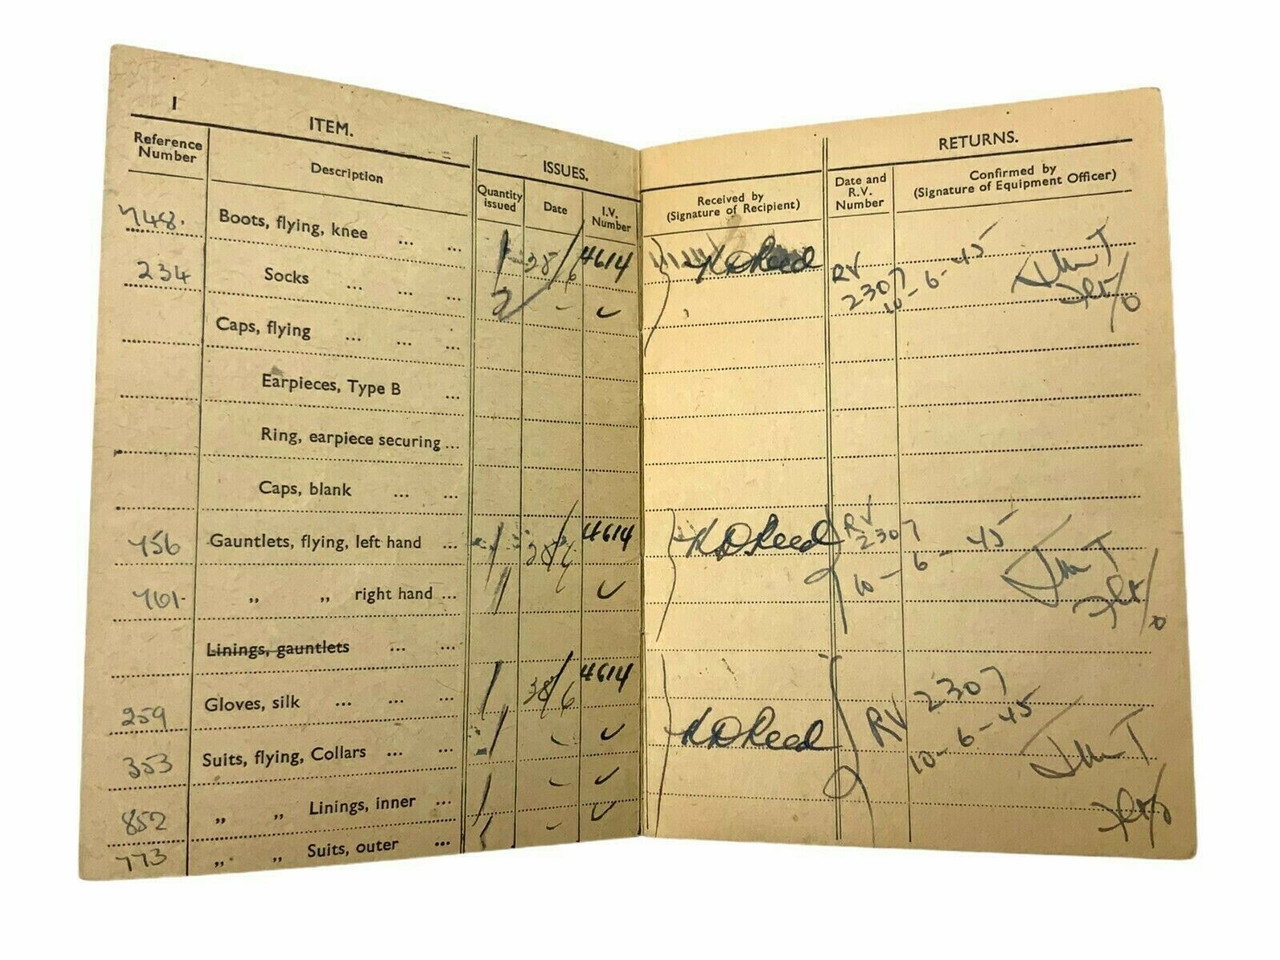 1
ITEM.
ISSUES.
Reference Number
Description
Quantity issued
Date
I.V. Number
748. Boots, flying, knee ... ... 1 4614
234 Socks ... ... ... 2 - ✓
Caps, flying ... ... ...
Earpieces, Type B ...
Ring, earpiece securing ...
Caps, blank ... ...
456 Gauntlets, flying, left hand ... 1 4614
461 „ „ right hand ... 1 ✓
Linings, gauntlets ... ...
259 Gloves, silk ... ... ... 1 4614
353 Suits, flying, Collars ... ... 1 - ✓
852 „ „ Linings, inner ... 1 - ✓
773 „ „ Suits, outer ... 1 - ✓
RETURNS.
Received by (Signature of Recipient)
Date and R.V. Number
Confirmed by (Signature of Equipment Officer)
Reed RV 2307 10-6-45
Reed RV 2307 10-6-45
Reed RV 2307 10-6-45